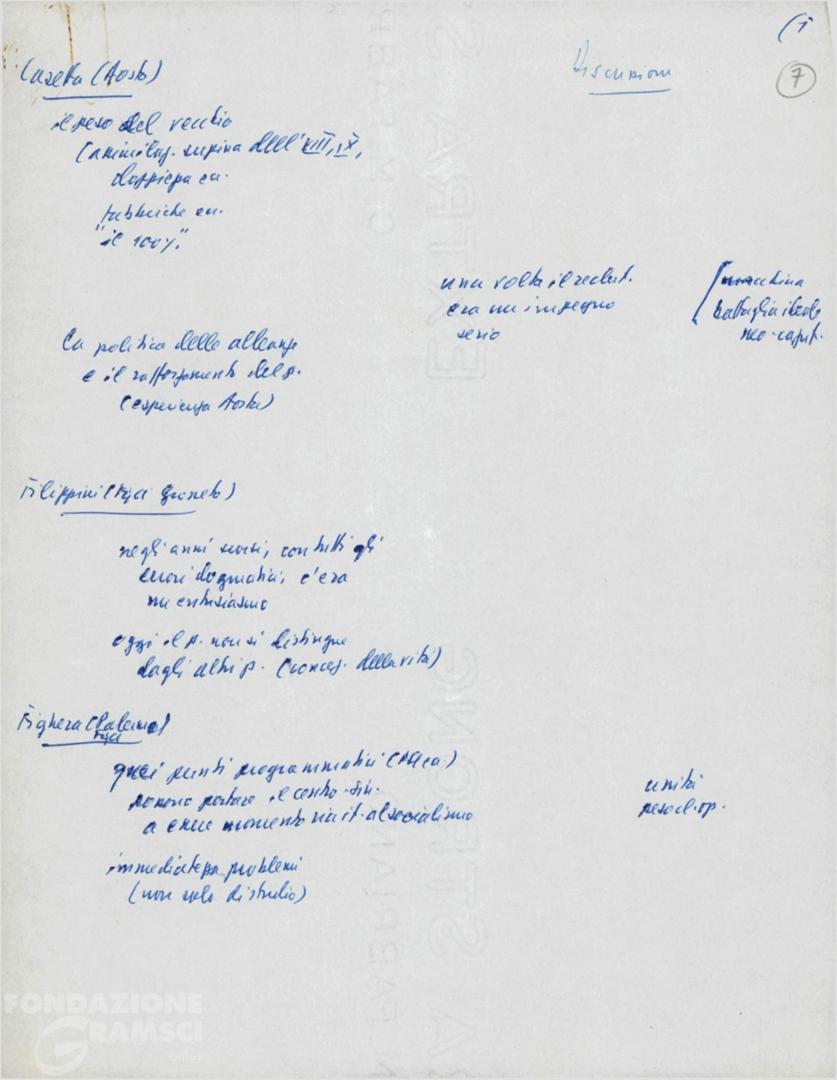 (1
7
Discussione
Casetta (Aosta)
il peso del vecchio
supina dell'VIII, IX,
doppiezza ecc.
fabbriche ecc.
"il 100%."
una volta il reclut.
era un impegno
serio
macchina
battaglia ideale
neo-capit.
La politica delle alleanze
e il rafforzamento del p.
(esperienza Aosta)
Filippini (Fgci Grosseto)
negli anni scorsi, con tutti gli
errori dogmatici, c'era
un entusiasmo
oggi il p. non si distingue
dagli altri p. (concez. della vita)
Fighera (Palermo)
Fgci
quei punti programmatici
possono portare il centro-sin.
a essere momento via it. al socialismo
unità
peso cl. op.
immediatezza problemi
(non solo di studio)
FONDAZIONE
GRAMSCI
onlus